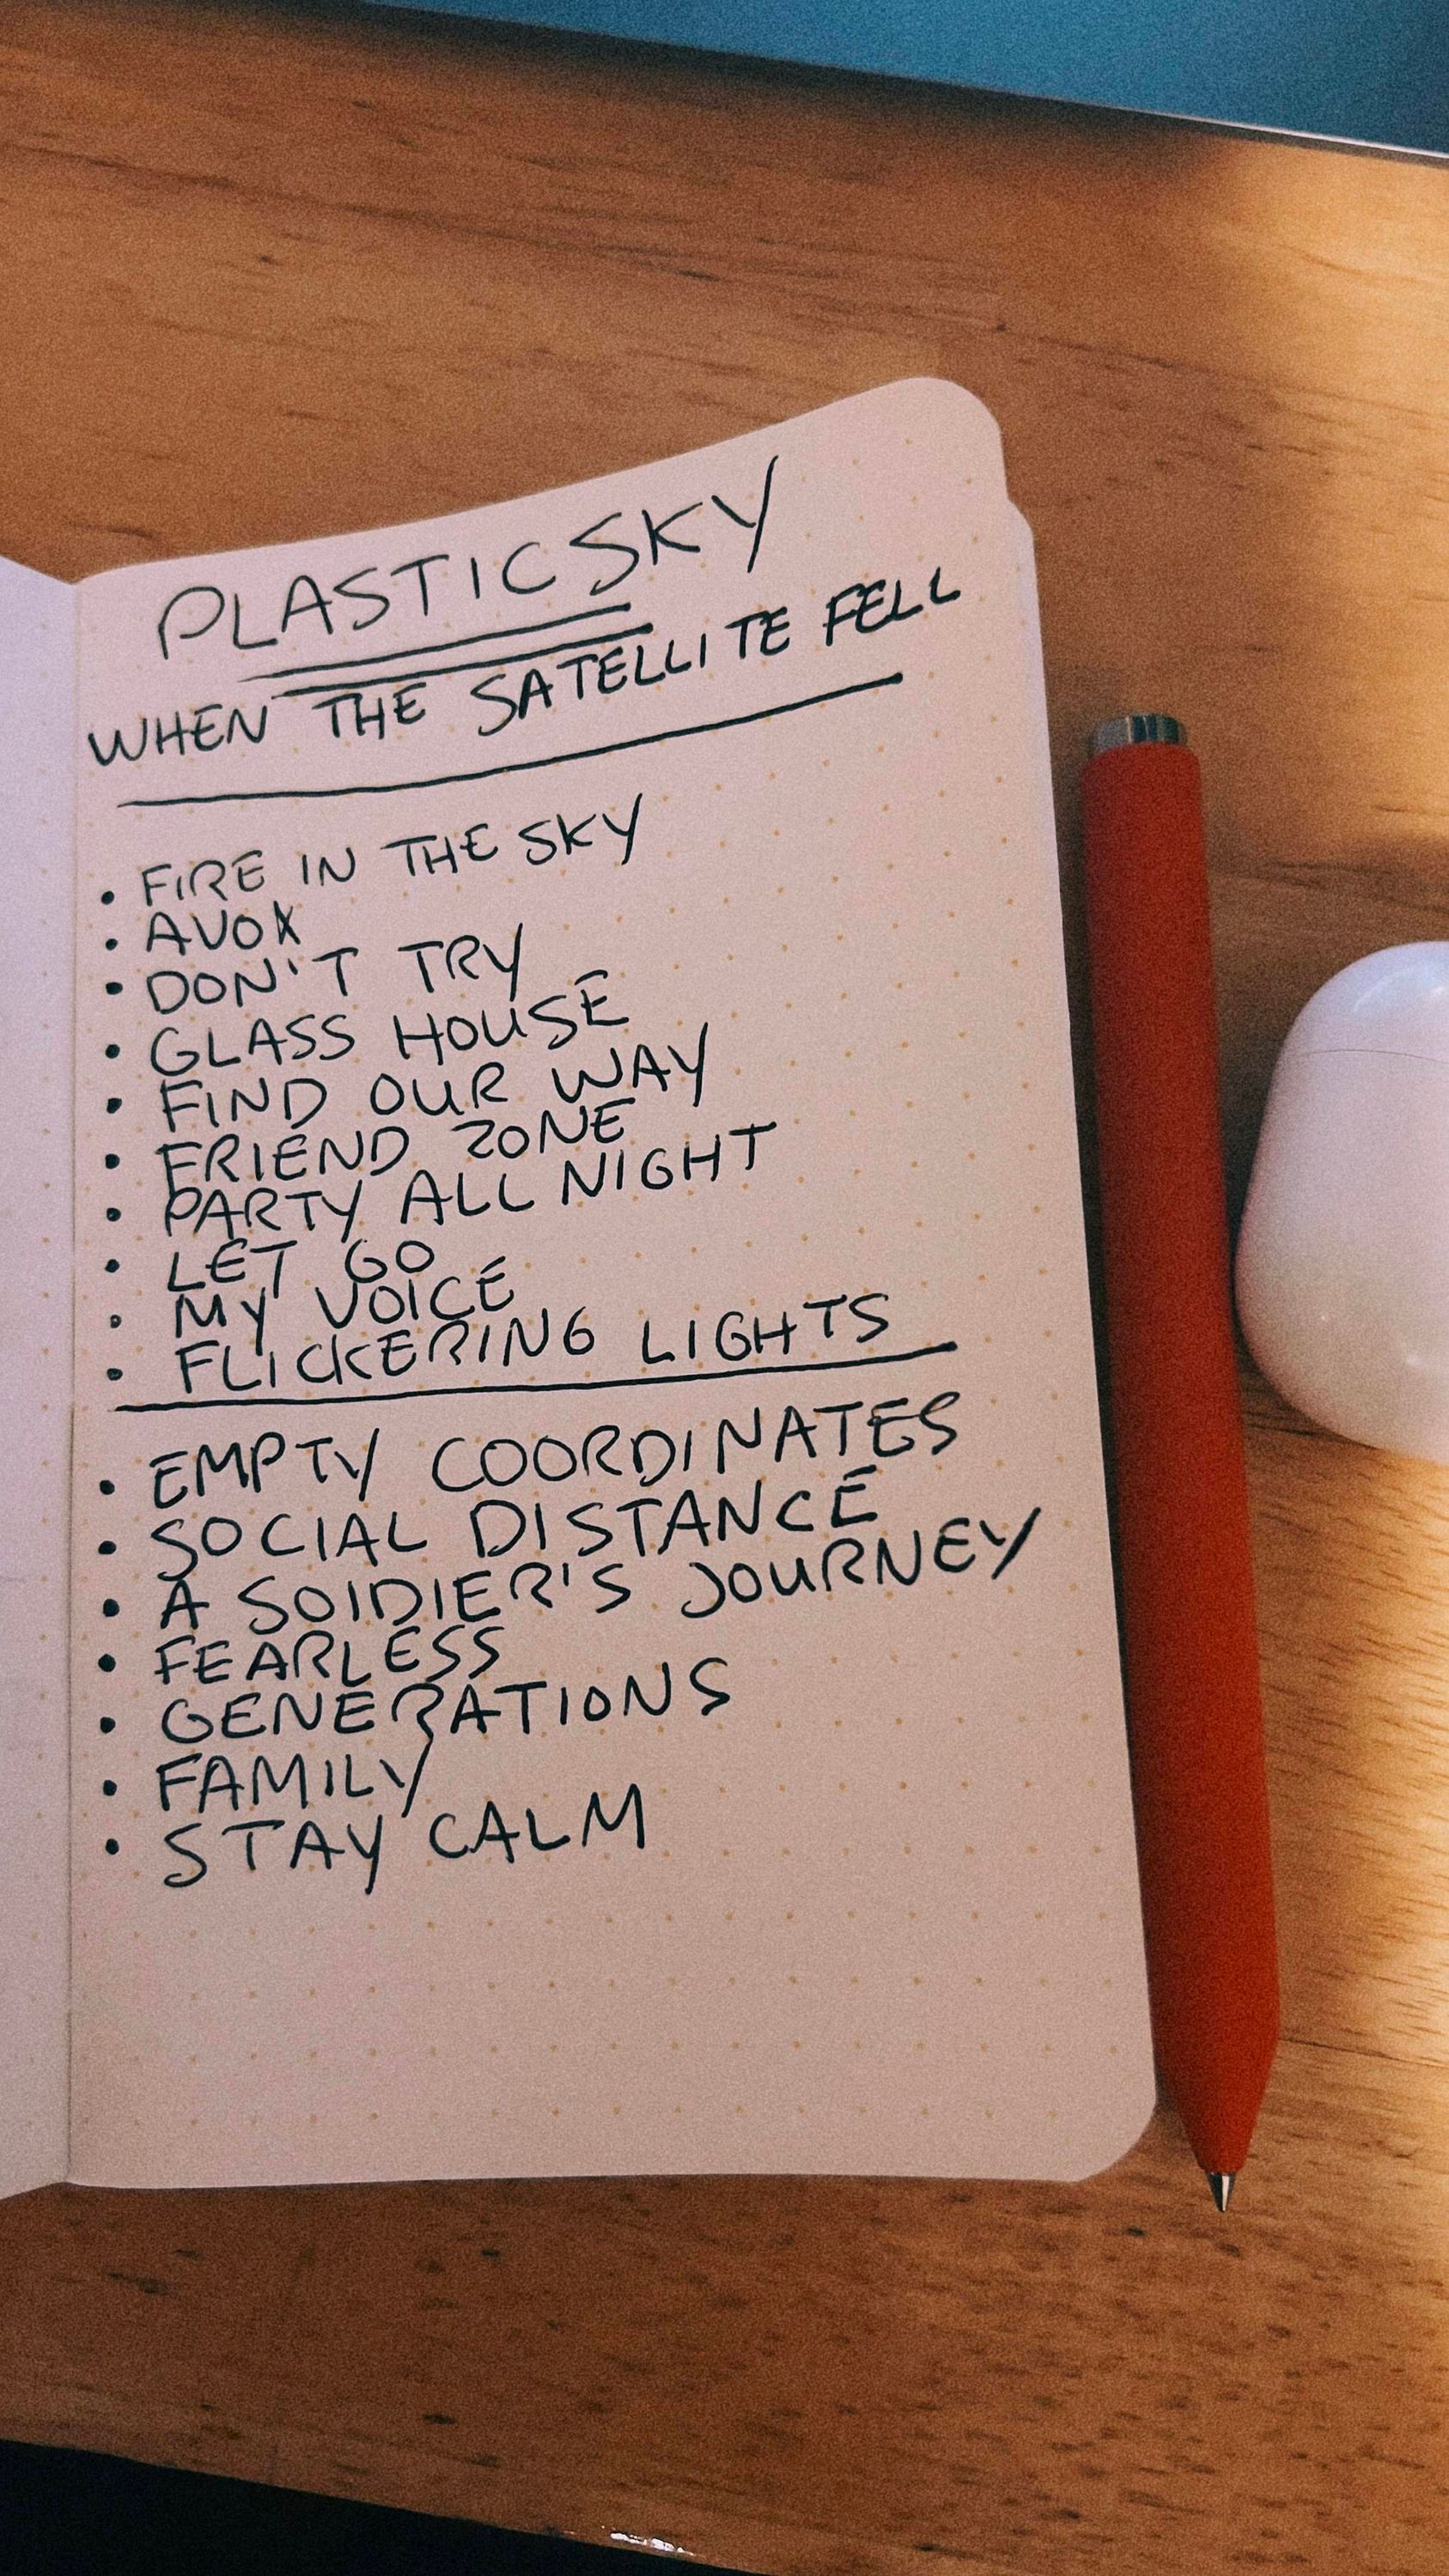 PLASTIC SKY
WHEN THE SATELLITE FELL
• FIRE IN THE SKY
• AVOX
• DON'T TRY
• GLASS HOUSE
• FIND OUR WAY
• FRIEND ZONE
• PARTY ALL NIGHT
• LET GO
• MY VOICE
• FLICKERING LIGHTS
• EMPTY COORDINATES
• SOCIAL DISTANCE
• A SOIDIER'S JOURNEY
• FEARLESS
• GENERATIONS
• FAMILY
• STAY CALM